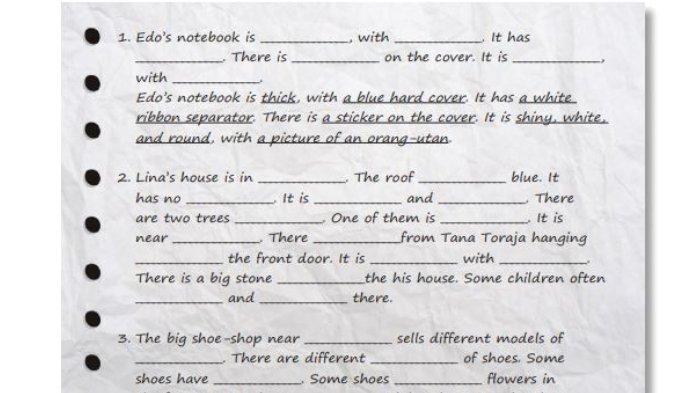 1. Edo's notebook is ____________, with ____________. It has
____________. There is ____________ on the cover. It is ____________,
with ____________.
Edo's notebook is thick, with a blue hard cover. It has a white
ribbon separator. There is a sticker on the cover. It is shiny, white,
and round, with a picture of an orang-utan.
2. Lina's house is in ____________. The roof ____________ blue. It
has no ____________. It is ____________ and ____________. There
are two trees ____________. One of them is ____________. It is
near ____________. There ____________from Tana Toraja hanging
____________ the front door. It is ____________ with ____________.
There is a big stone ____________the his house. Some children often
____________ and ____________ there.
3. The big shoe-shop near ____________ sells different models of
____________. There are different ____________ of shoes. Some
shoes have ____________. Some shoes ____________ flowers in